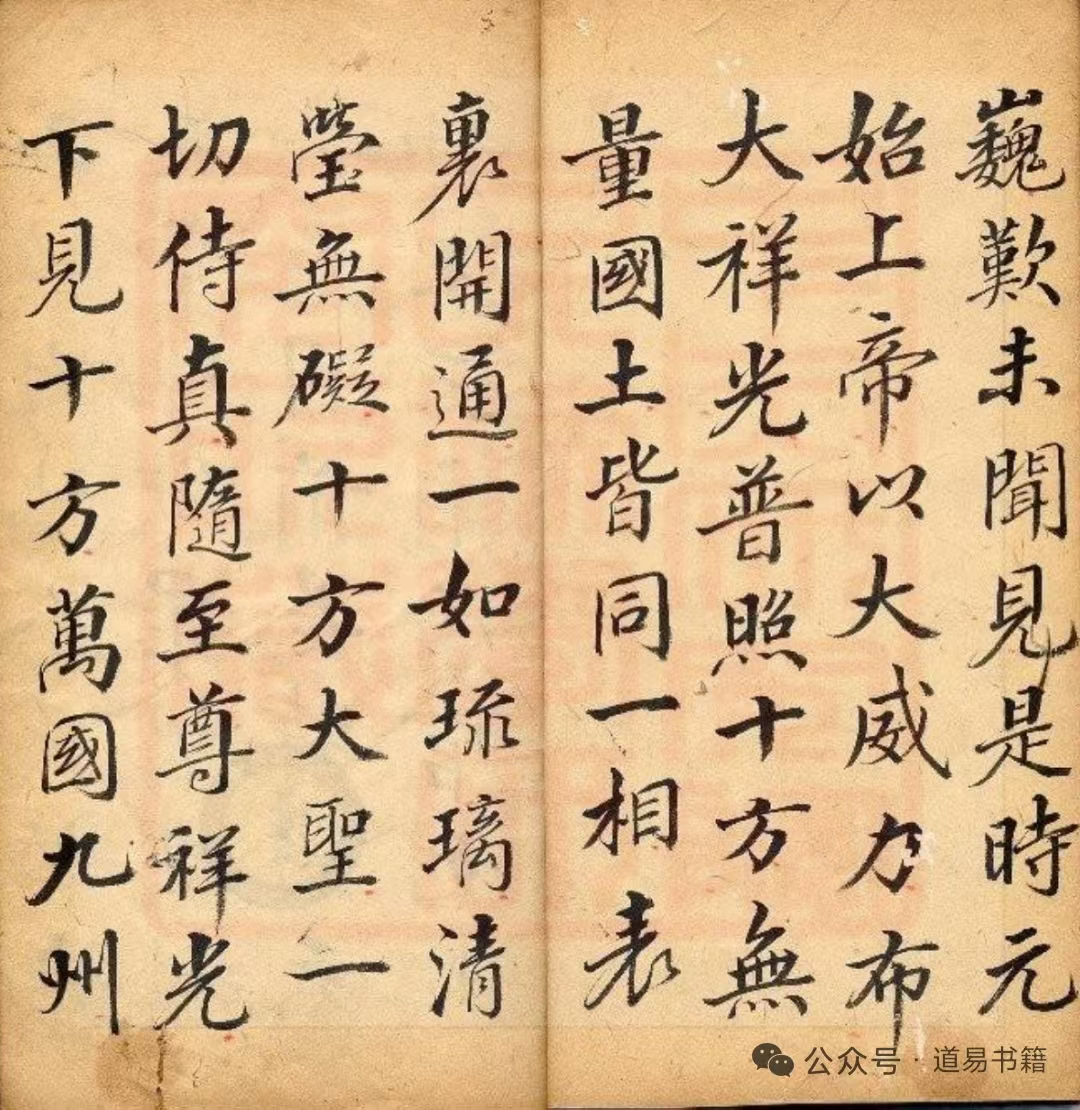 巍歎未聞見是時元
始上帝以大威力布
大祥光普照十方無
量國土皆同一相表
裏開通一如琉璃清
瑩無礙十方大聖一
切侍真隨至尊祥光
下見十方萬國九州
公众号·道易书籍